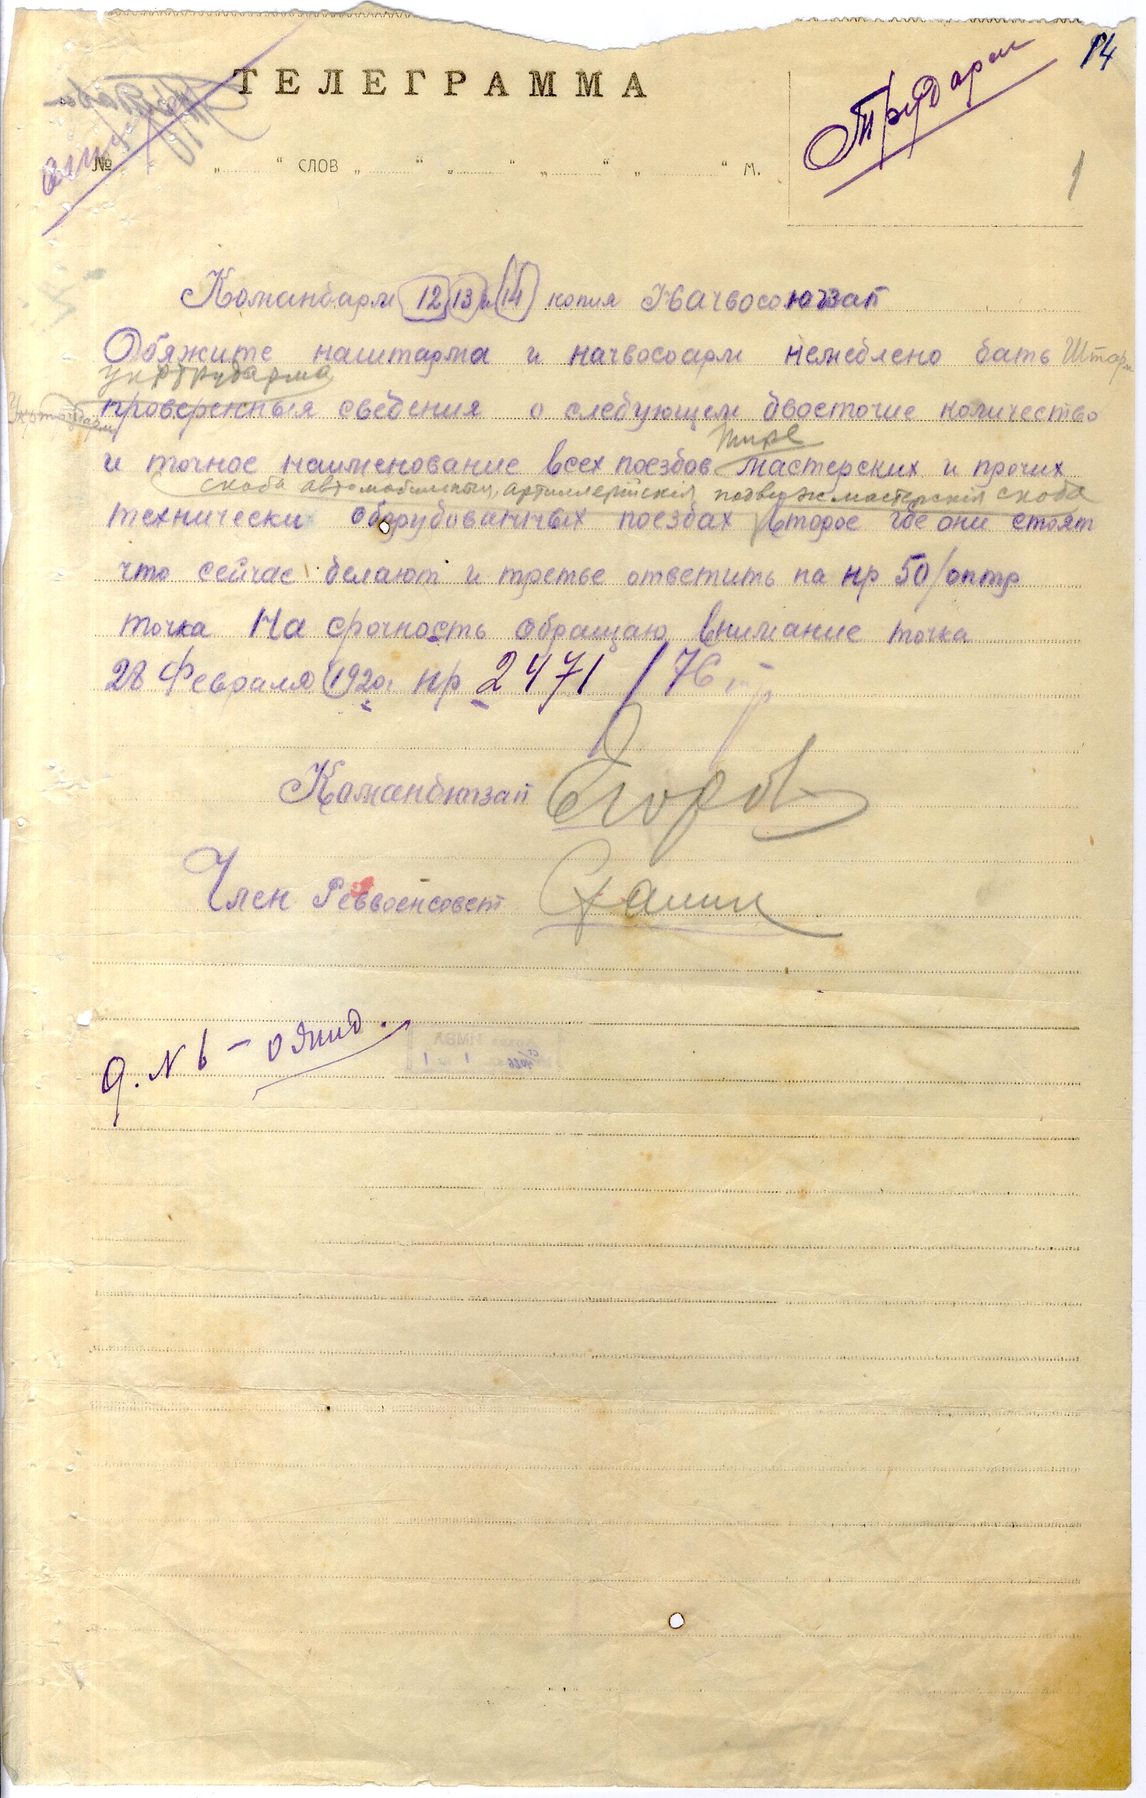 14
ТЕЛЕГРАММА
Трударм
1
№ „ “ слов „ “ „ “ „ “ „ “ м.
Командарм 12 13 и 14 копия Начвосоюгзап
Обяжите наштарма и начвосоарм немедлено дать Штарм
укртрударма
проверенныя сведения о следующем двоеточие количество
и точное наименование всех поездов тире мастерских и прочих
скоба автомобильныя, артиллерийския мастерския скоба
технически оборудованных поездах второе где они стоят
что сейчас делают и третье ответить на нр 50/оптр
точка На срочность обращаю внимание точка
28 Февраля 1920г. нр 2471 / 76
Командюгзап Егоров
Член Реввоенсовет Сталин